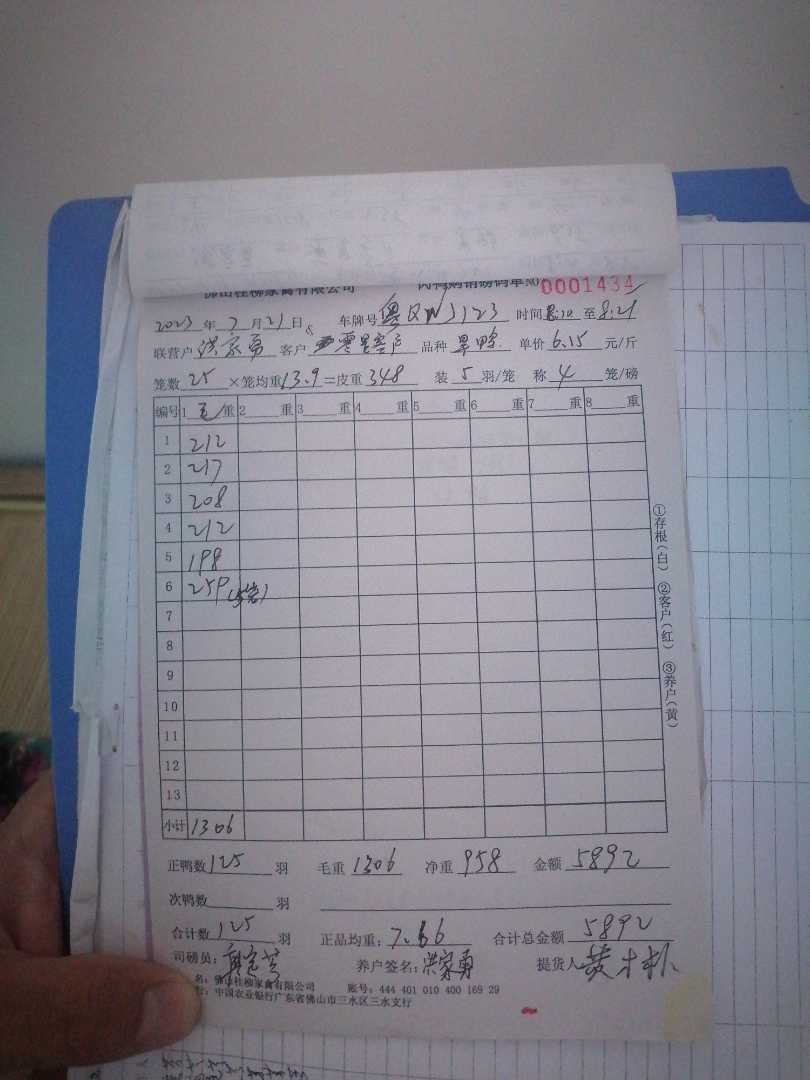 佛山桂柳家禽有限公司 肉鸭购销磅码单 No 0001434
2023年7月21日 车牌号 粤QW3123 时间 8:20 至 8:21
联营户 洪家勇 客户 零星客户 品种 旱鸭 单价 6.15 元/斤
笼数 25 ×笼均重 13.9 =皮重 348 装 5 羽/笼 称 4 笼/磅
编号 1 毛 重 2 重 3 重 4 重 5 重 6 重 7 重 8 重
1 212
2 217
3 208
4 212
5 198
6 259 (5笼)
7
8
9
10
11
12
13
小计 1306
①存根(白) ②客户(红) ③养户(黄)
正鸭数 125 羽 毛重 1306 净重 958 金额 5892
次鸭数 羽
合计数 125 羽 正品均重: 7.66 合计总金额 5892
司磅员: 养户签名: 洪家勇 提货人 黄
名: 佛山桂柳家禽有限公司 账号: 444 401 010 400 169 29
行: 中国农业银行广东省佛山市三水区三水支行